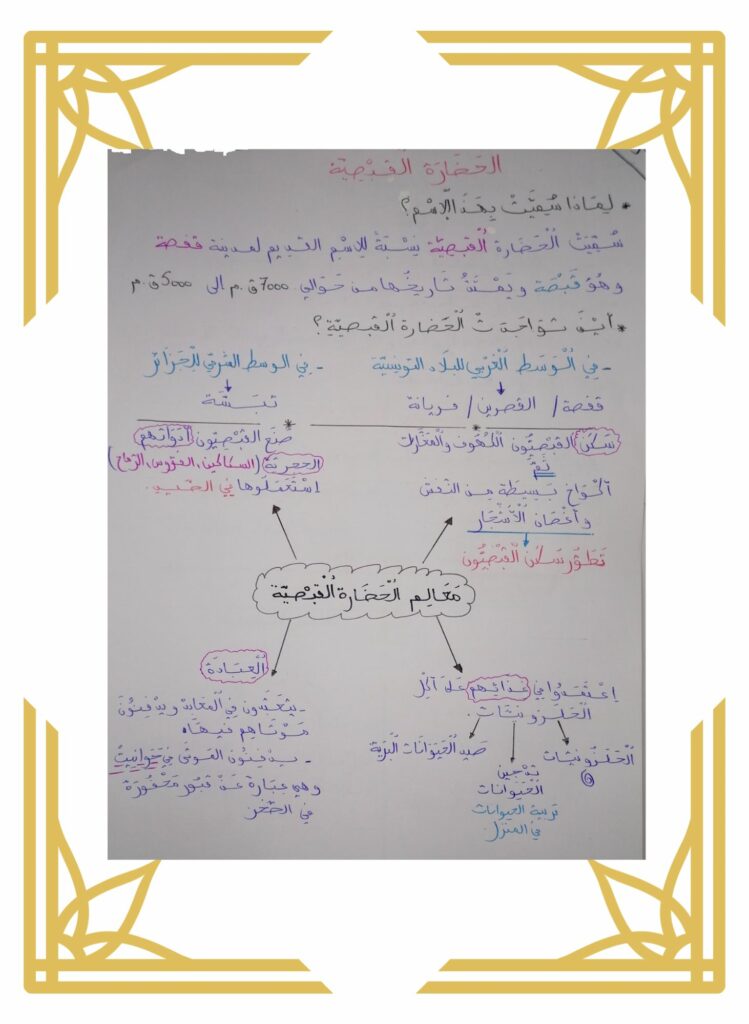 الحَضَارَة القَبْصِيّة
* لِمَاذَا سُمِّيَتْ بِهَذَا الاِسْمِ؟
سُمِّيَتْ الْحَضَارة الْقَبْصِيّة نِسْبَةً لِلاِسْمِ القَدِيم لِمدِينة قفصة
وهُوَ قَبْصَة ويَمْتَدُّ تَارِيخُها من حَوَالي 7000 ق.م إلى 5000 ق.م
* أَيْنَ تَوَاجَدَتْ الْحَضارة الْقَبصِيّة؟
- فِي الْوَسَط الْغَرْبِي للبلاد التونسِيّة
قفصة / القصرين / فريانة
- في الوسط الشرقي للْجَزَائر
تبسّة
سَكَنَ القبْصِيُّون الْكُهُوف والْمَغَارات
ثُمَّ
أكْوَاخ بَسِيطَة من القش
وأغْصان الْأَشْجَار
تَطَوُّر سَكن الْقَبْصِيُّون
صَنَعَ القَبْصِيُّون أَدَوَاتهم
الحجريّة (السكاكين، الفؤوس، الرّماح)
اسْتَعْمَلُوها في الصّيد.
مَعَالِم الْحَضَارة الْقَبْصِيّة
اِعْتَمَدُوا في غذائهم عَلَى أكْل
الْحَلَزُونِيَّات.
الْحَلَزُونيّات
تدجين
الْحَيَوَانات
تربية الحيوانات
في المنزل.
صَيد الْحَيَوانَات البرّيّة
الْعِبَادَة
- يتعبّدون في الْمَعابد ويدفِنُونَ
مَوْتَاهم فيهَا.
- يدفِنُون الموتى فِي حَوَانِيتٌ
وهي عِبَارة عَنْ قبُور مَحْفُورَة
في الصّخر